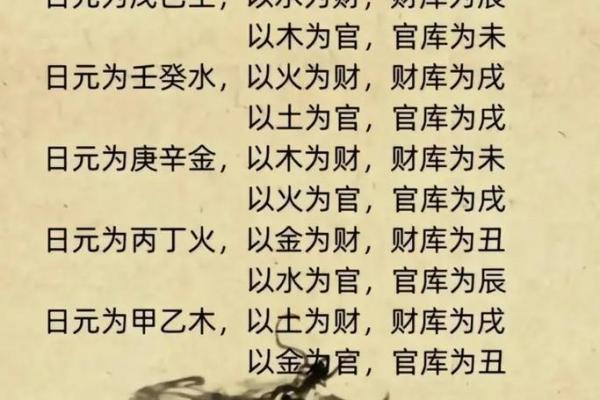 日元为戊己土，以水为财，财库为辰
以木为官，官库为未
日元为壬癸水，以火为财，财库为戌
以土为官，官库为戌
日元为庚辛金，以木为财，财库为未
以火为官，官库为戌
日元为丙丁火，以金为财，财库为丑
以水为官，官库为辰
日元为甲乙木，以土为财，财库为戌
以金为官，官库为丑